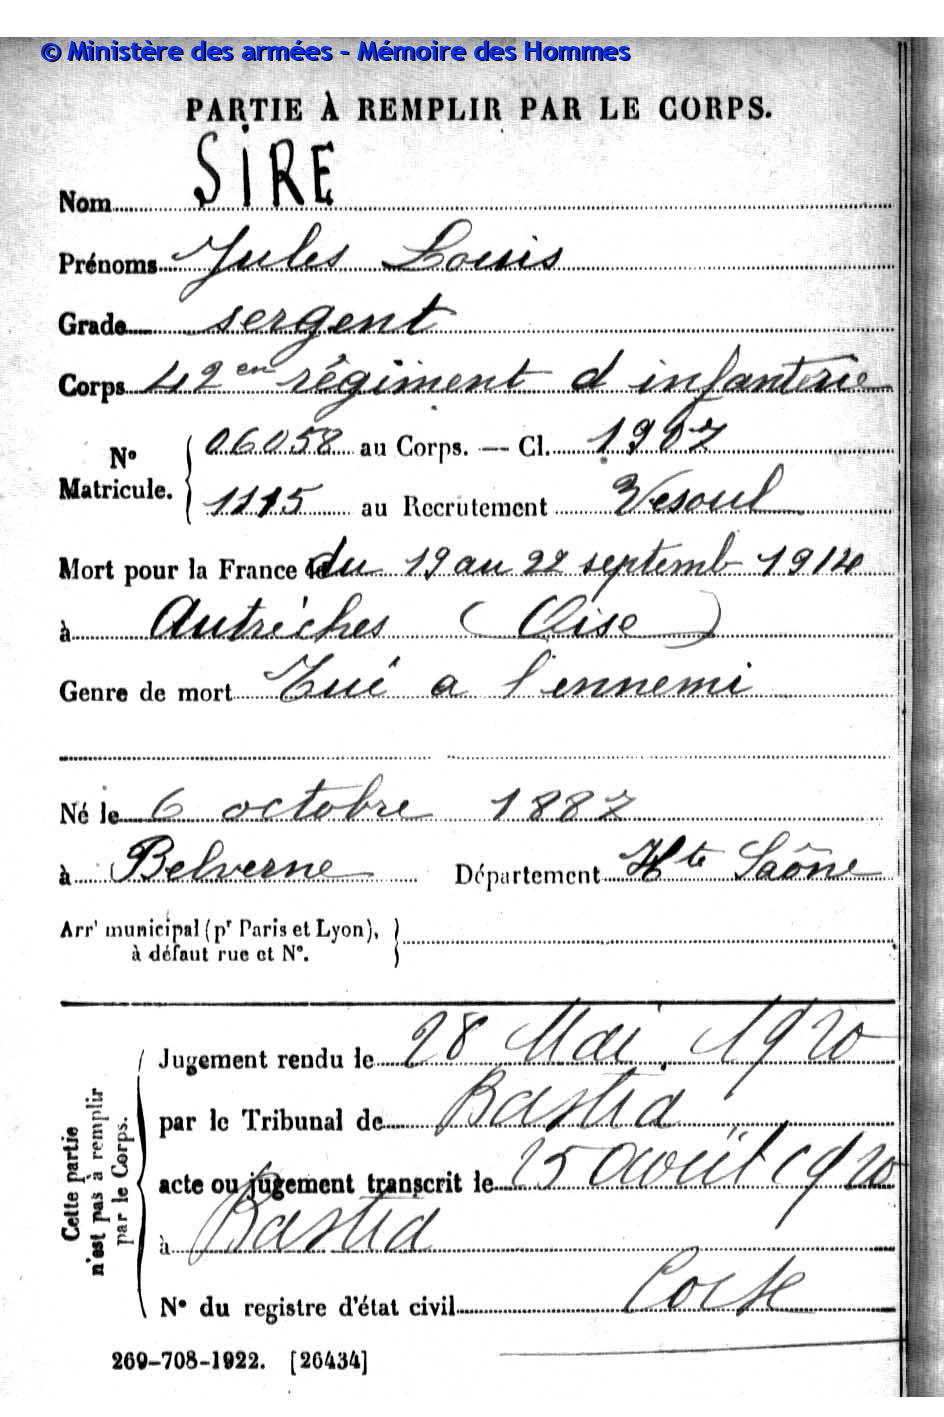 © Ministère des armées - Mémoire des Hommes
PARTIE À REMPLIR PAR LE CORPS.
Nom SIRE
Prénoms Jules Louis
Grade sergent
Corps 42 en régiment d infanterie
N° Matricule. 06058 au Corps. — Cl. 1907
1115 au Recrutement Vesoul
Mort pour la France du 19 au 22 septemb 1914
à Autrèches (Oise)
Genre de mort Tué a l'ennemi
Né le 6 octobre 1887
à Belverne Département Hte Saône
Arrt municipal (pr Paris et Lyon),
à défaut rue et N°.
Cette partie
n'est pas à remplir
par le Corps.
Jugement rendu le 28 Mai 1920
par le Tribunal de Bastia
acte ou jugement transcrit le 25 août 1920
à Bastia
N° du registre d'état civil Corse
269-708-1922. [26434]